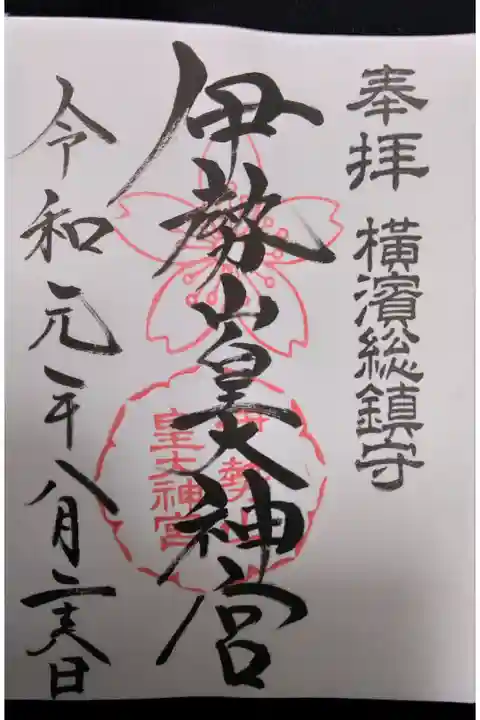 奉拝 横濱総鎮守
伊勢山皇大神宮
伊勢山
皇大神宮
令和元年八月二十八日